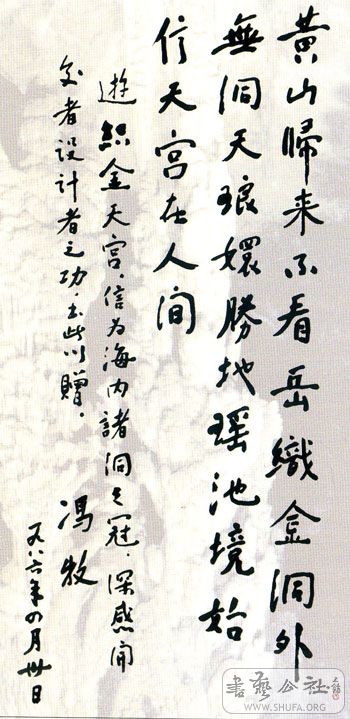 黄山歸来不看岳織金洞外
無洞天琅嬛勝地瑶池境始
信天宫在人间
遊織金天宫，信为海内諸洞之冠，深感開
发者設计者之功，书此以贈。
冯牧
一九八六年四月卅日
書藝公社
WWW.SHUFA.ORG